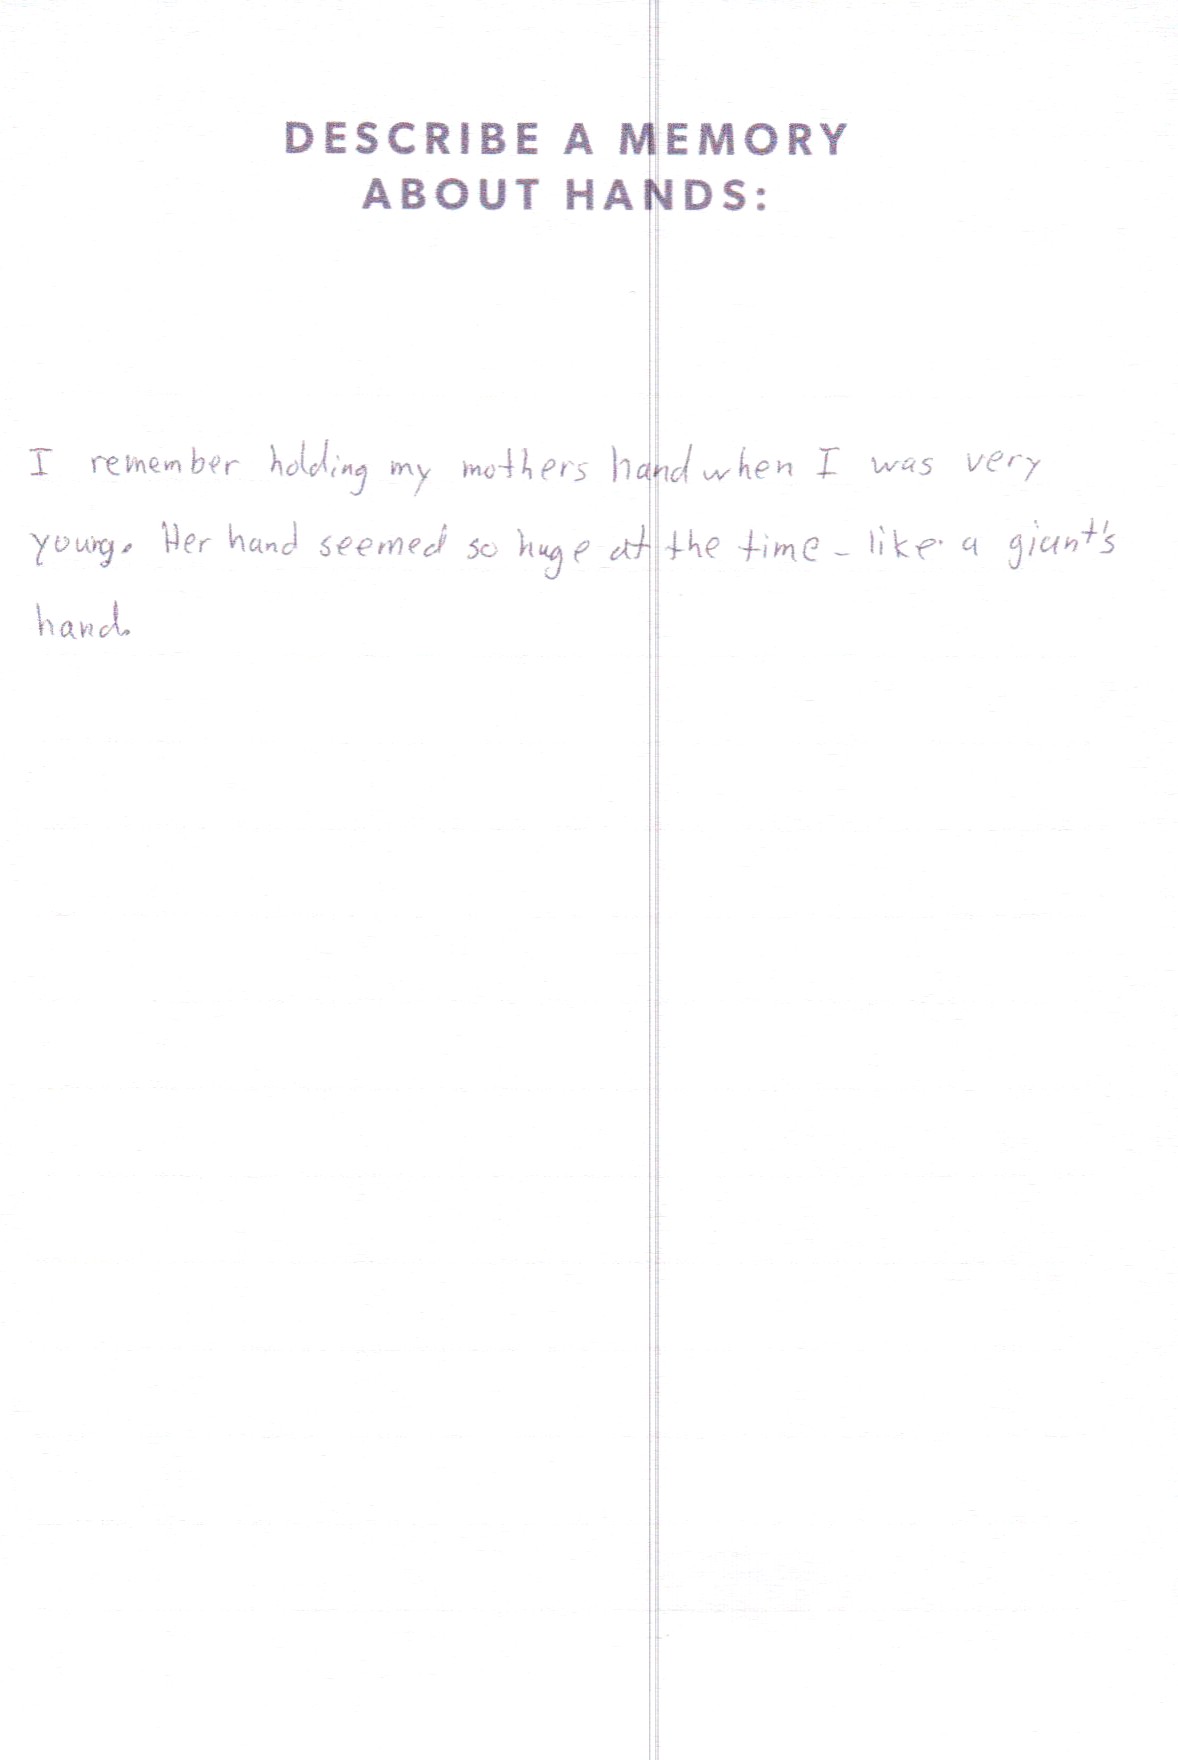 DESCRIBE A MEMORY
ABOUT HANDS:
I remember holding my mothers hand when I was very
young. Her hand seemed so huge at the time - like a giant's
hand.